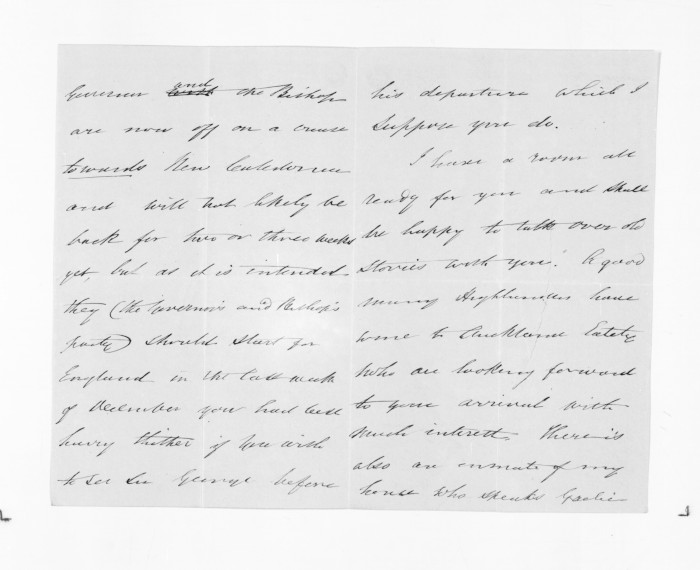 Governor and the Bishop
are now off on a cruise
towards New Caledonia
and will not likely be
back for two or three weeks
yet, but as it is intended
they (the Governor's and Bishop's
party) should start for
England in the last week
of December you had best
hurry thither if you wish
to see Sir George before
his departure which I
suppose you do.
I have a room all
ready for you and shall
be happy to talk over old
stories with you. A good
many Highlanders have
come to Auckland lately
who are looking forward
to your arrival with
much interest. There is
also an inmate of my
house who speaks Gaelic